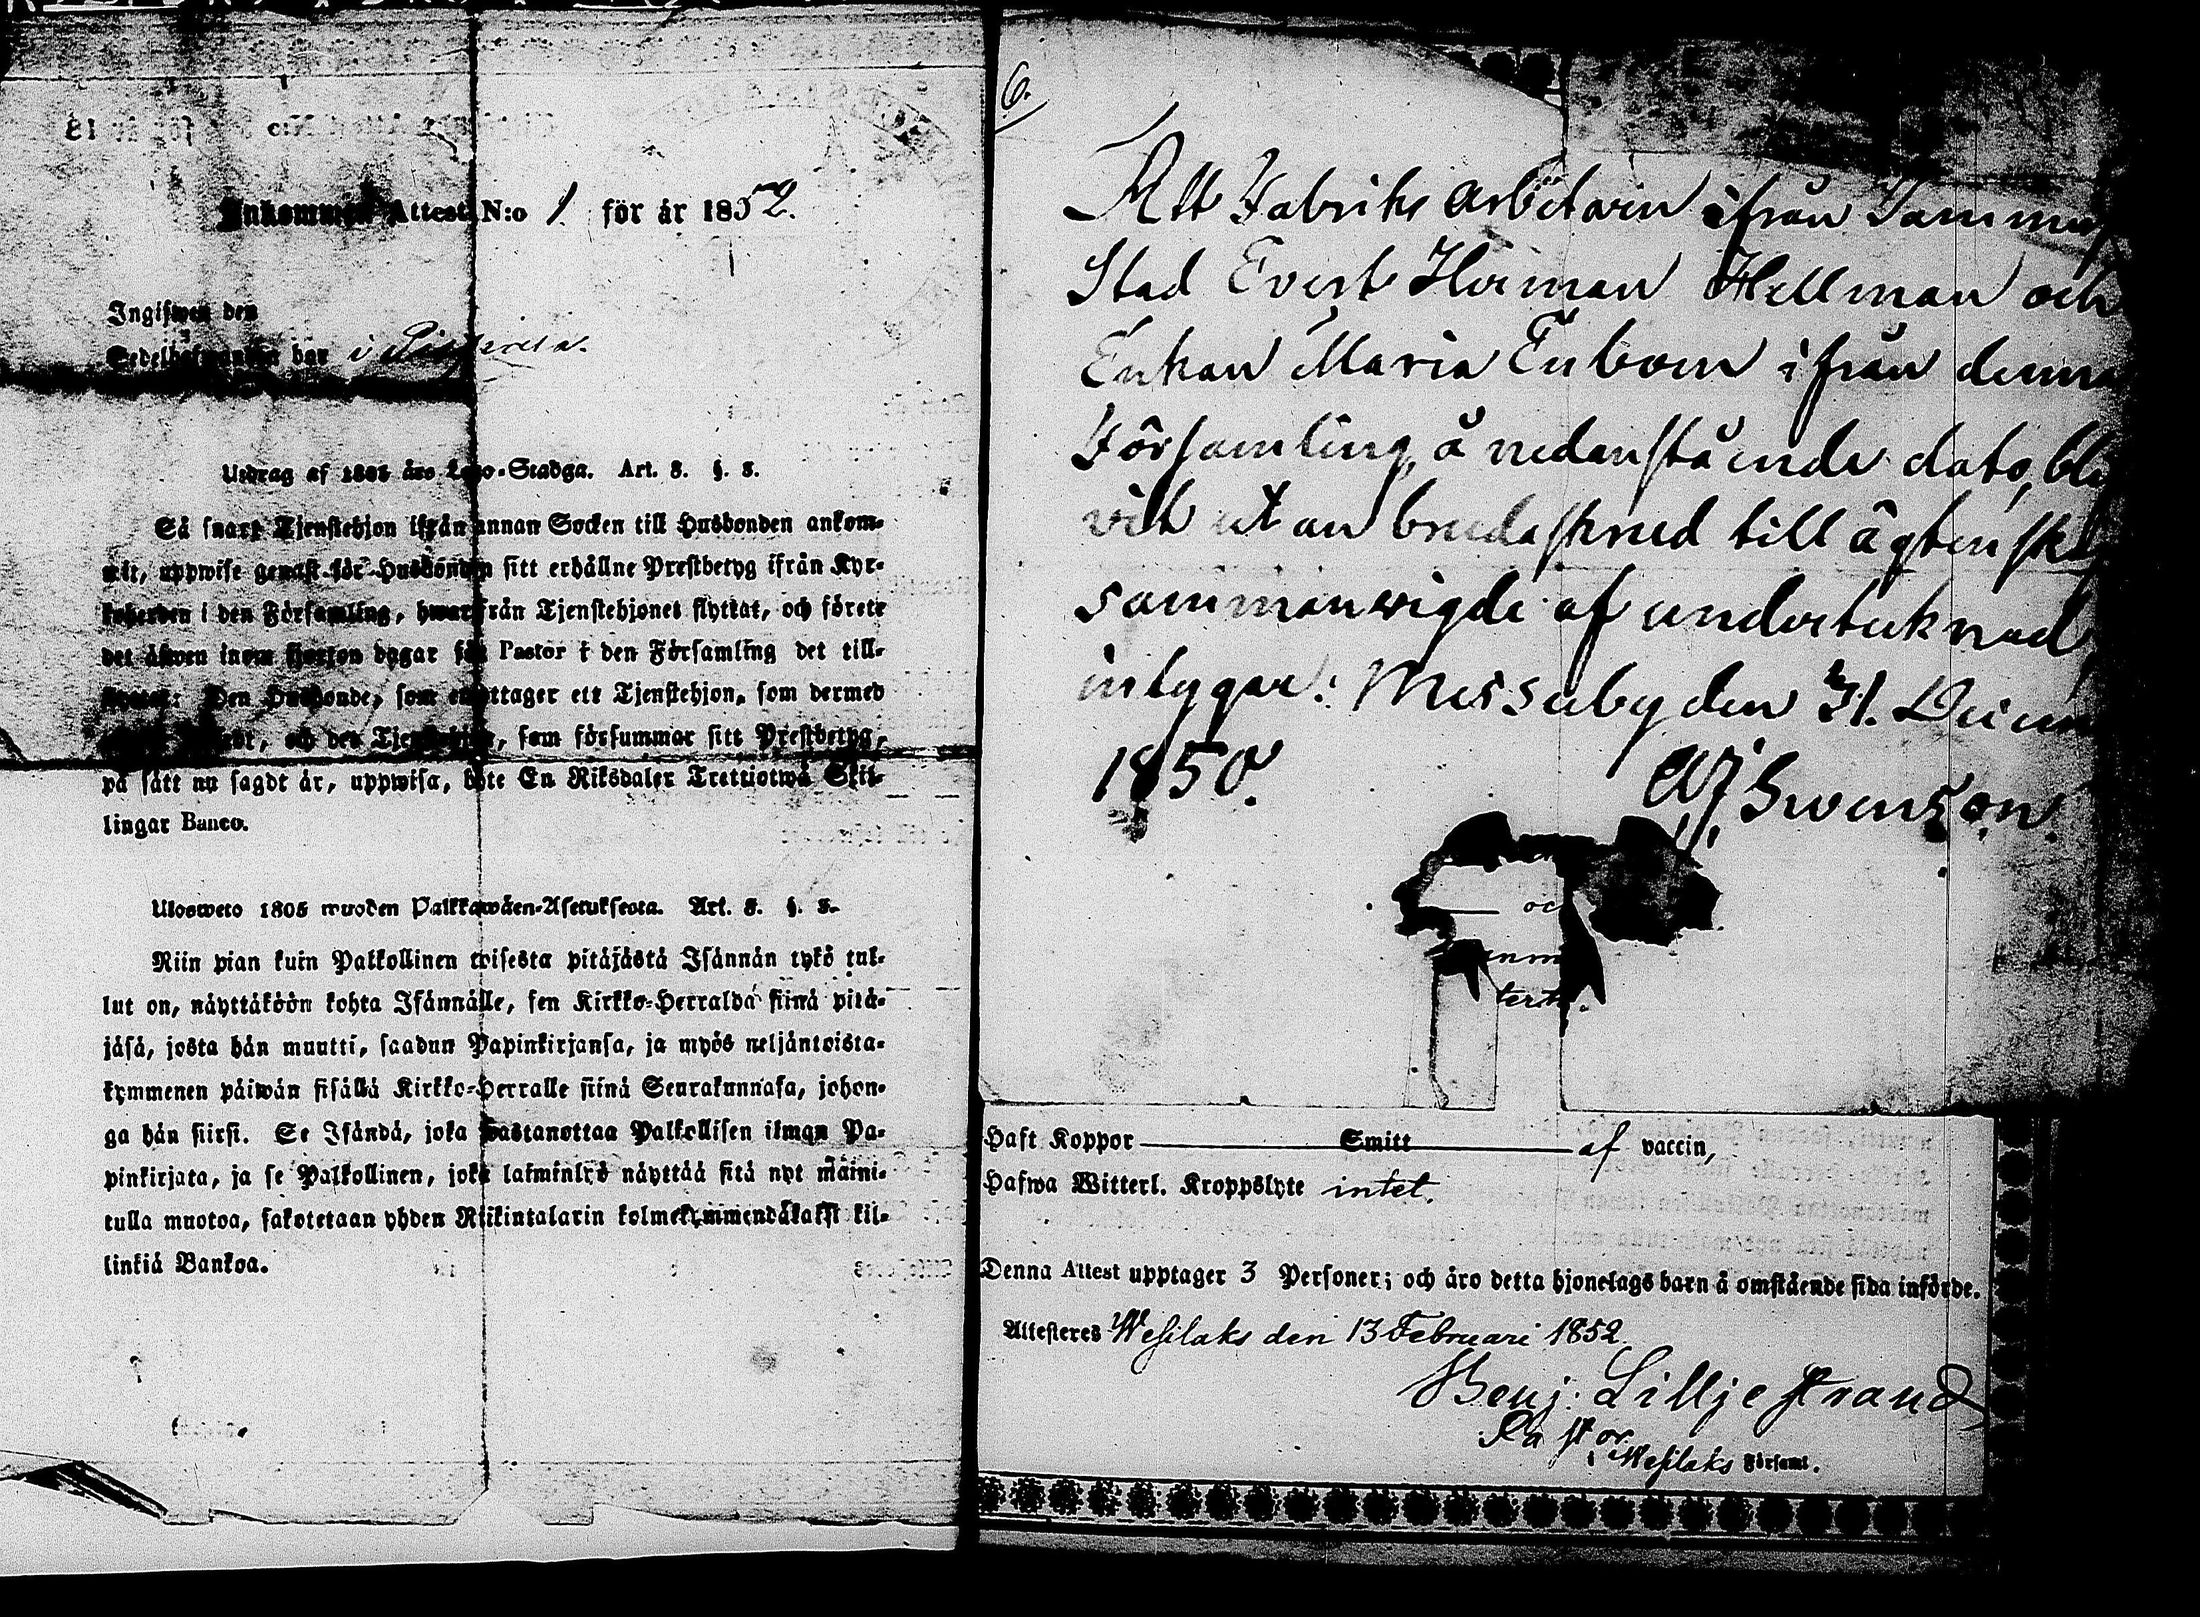 Inkommen Attest N:o 1 för år 1852.
Ingifwen den
Sedelhafwanden bor i
Utdrag af 1805 års Lego-Stadga. Art. 3. §. 3.
Så snart Tjenstehjon ifrån annan Socken till Husbonden ankom-
mit, uppwise genast för Husbonden sitt erhållne Prestbetyg ifrån Kyr-
koherden i den Församling, hwarifrån Tjenstehjonet flyttat, och förete
det äfwen inom fjorton dagar för Pastor i den Församling det till-
flyttat: Den Husbonde, som emottager ett Tjenstehjon, som dermed
och det Tjenstehjon, som försummar sitt Prestbetyg,
på sätt nu sagdt är, uppwisa, böte En Riksdaler Trettiotwå Skil-
lingar Banco.
Ulosweto 1805 wuoden Palkkawäen-Asetuksesta. Art. 3. §. 3.
Niin pian kuin Palkollinen toisesta pitäjästä Isännän tykö tul-
lut on, näyttäköön kohta Isännälle, sen Kirkko-Herralda siinä pitä-
jäsä, josta hän muutti, saadun Papinkirjansa, ja myös neljäntoista-
kymmenen päiwän sisällä Kirkko-Herralle siinä Seurakunnasa, johon-
ga hän siirsi. Se Isändä, joka wastanottaa Palkollisen ilman Pa-
pinkirjata, ja se Palkollinen, joka laiminlyö näyttää sitä nyt maini-
tulla muotoa, sakotetaan yhden Riikintalarin kolmekymmendäkaksi kil-
linkiä Bankoa.
6.
Att Fabriks arbetaren ifrån Tammerf
Stad Evert Herman Hellman och
Enkan Maria Enboen ifrån denna
Församling, å nedanstående dato, bli
vit utan brudeskrud till ägtensk
sammanvigde af undertecknad,
intygar: Messuby den 31. Decem
1850. Swenson.
oc
Haft Koppor Smitt af vaccin,
Hafwa Witterl. Kroppslyte intet.
Denna Attest upptager 3 Personer; och äro detta hjonelags barn å omstående sida införde.
Attesteres Wesilaks den 13 Februari 1852.
Benj: Lilljestrand
Pastor
i Wesilaks Församl.